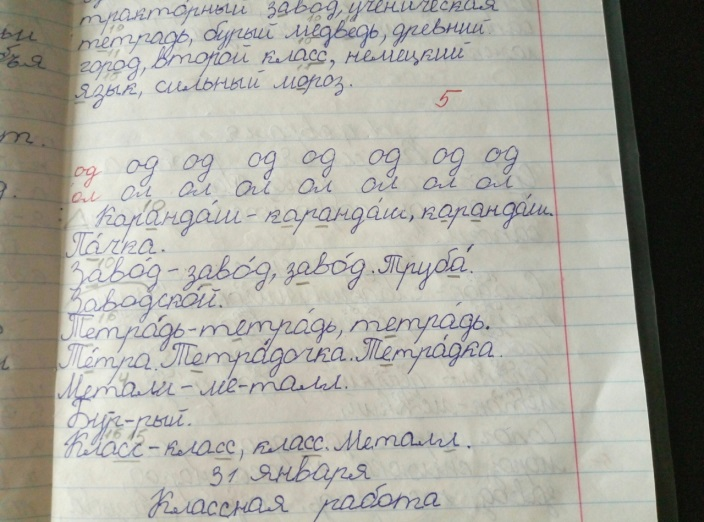 тракторный завод, ученическая
тетрадь, бурый медведь, древний
город, второй класс, немецкий
язык, сильный мороз.
5
од од од од од од од од
ол ол ол ол ол ол ол ол
Каранда́ш - каранда́ш, каранда́ш.
Па́чка.
Заво́д - заво́д, заво́д. Труба́.
Заводской.
Тетра́дь - тетра́дь, тетра́дь.
Тетра. Тетра́дочка. Тетра́дка.
Металл - ме-талл.
Бур-рый.
Класс - класс, класс. Металл.
31 января
Классная работа